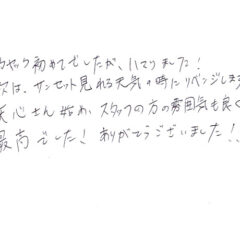 ヤック初めてでしたが、ハマりました!
次は、サンセット見れる天気の時にリベンジしま
心さん始め、スタッフの方の雰囲気も良く
最高でした! ありがとうございました!!